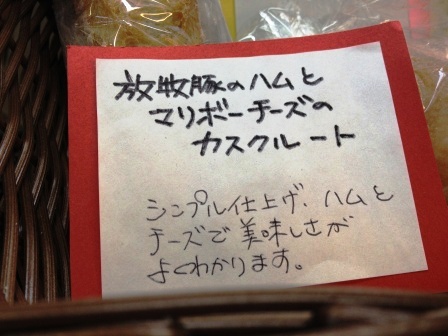 放牧豚のハムと
マリボーチーズの
カスクルート
シンプル仕上げ、ハムと
チーズで美味しさが
よくわかります。